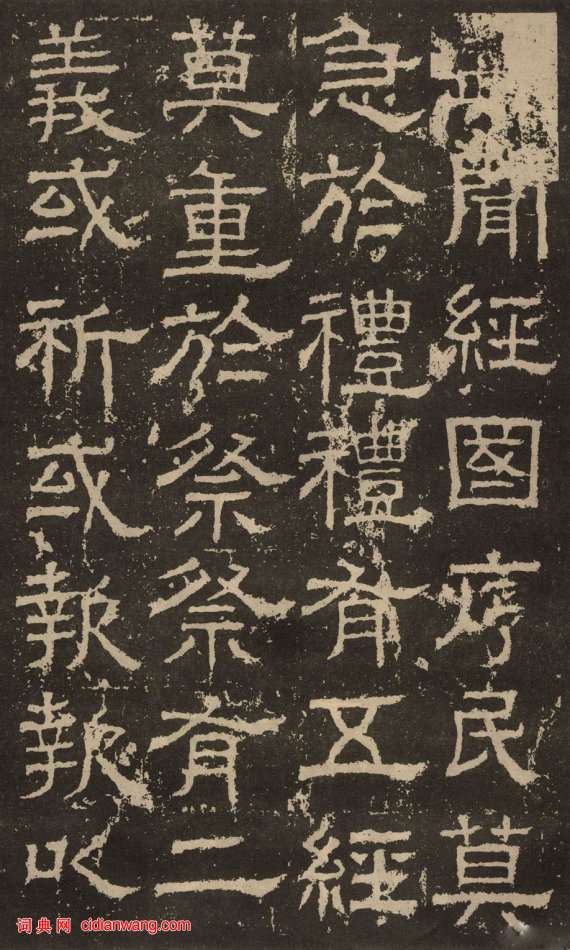 聞經國序民莫
急於禮禮有五經
莫重於祭祭有二
義或祈或報報以
词典网 cidianwang.com